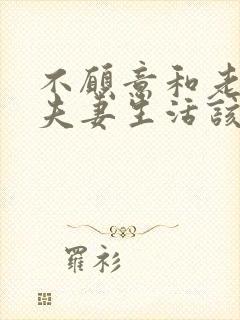 不願意和老
夫妻生活該
羅衫